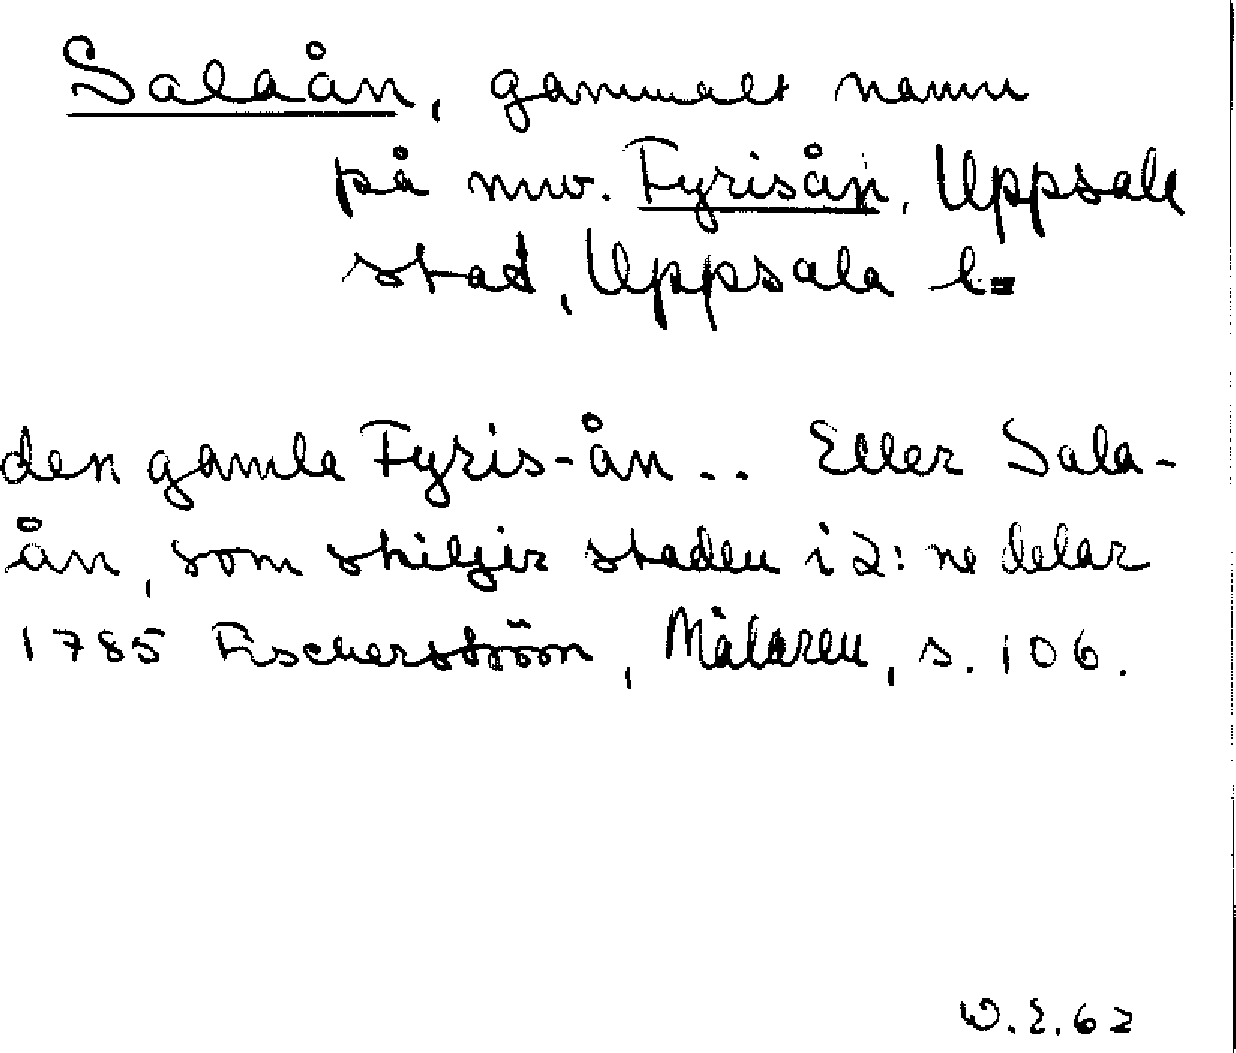 Salaån, gammalt namn
på nuv. Fyrisån, Uppsala
stad, Uppsala l=
den gamla Fyris-ån.. Eller Sala-
ån, som skiljer staden i 2:ne delar
1785 Fischerström, Mälaren, s. 106.
W.E.62